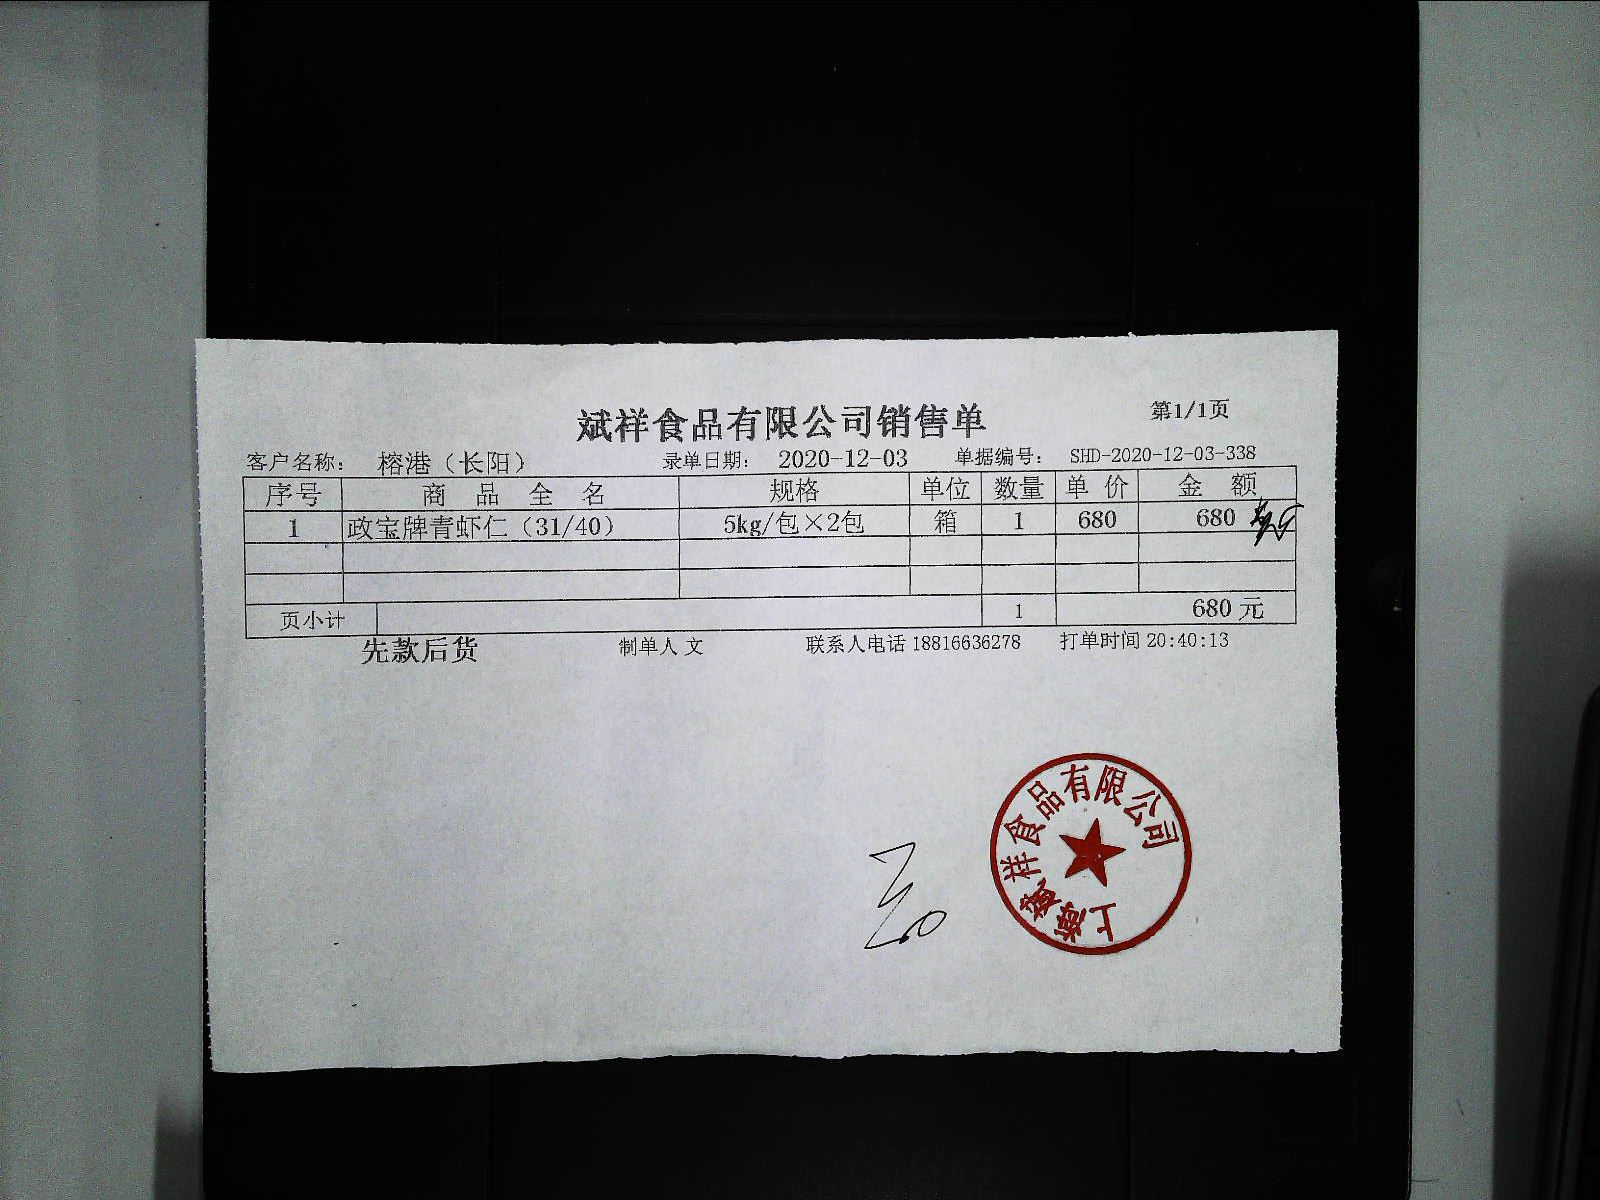 斌祥食品有限公司销售单
第1/1页
客户名称： 榕港（长阳） 录单日期： 2020-12-03 单据编号： SHD-2020-12-03-338
序号 商品全名 规格 单位 数量 单价 金额
1 政宝牌青虾仁（31/40） 5kg/包×2包 箱 1 680 680
页小计 1 680元
先款后货 制单人 文 联系人电话 18816636278 打单时间 20:40:13
上海斌祥食品有限公司